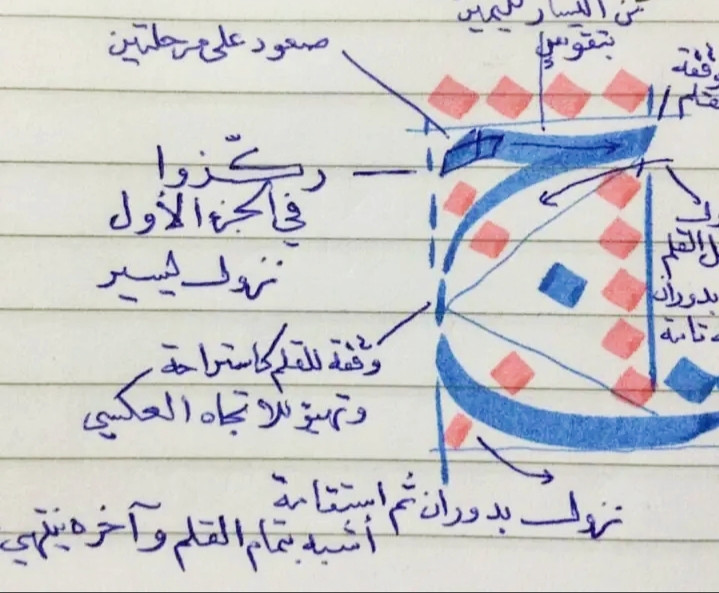 من اليسار لليمين
بتقوسٍ
صعود على مرحلتين
وقفة
القلم
ركّزوا
في الجزء الأول
نزول يسير
القلم
بدوران
تامة
وقفة للقلم كاستراحة
وتهيؤ للاتجاه العكسي
نزول بدوران ثم استقامة
أشبه بتمام القلم وآخره ينتهي